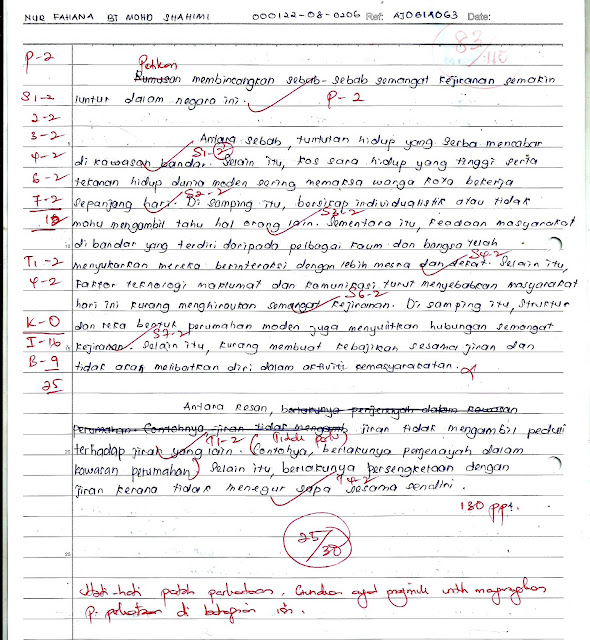 NUR FAHANA BT MOHD SHAHIMI 000122-08-0206 Ref: AJ061A063 Date:
83/110
P-2
Petikan
Rumusan membincangkan sebab-sebab semangat kejiranan semakin
S1-2 luntur dalam negara ini. P-2
2-2
3-2 Antara sebab, tuntutan hidup yang serba mencabar
4-2 di kawasan bandar. S1-2 Selain itu, kos sara hidup yang tinggi serta
6-2 tekanan hidup dunia moden sering memaksa warga kota bekerja
7-2 sepanjang hari. S2-2 Di samping itu, bersikap individualistik atau tidak
12 mahu mengambil tahu hal orang lain. S3-2 Sementara itu, keadaan masyarakat
di bandar yang terdiri daripada pelbagai kaum dan bangsa telah
T1-2 menyukarkan mereka berinteraksi dengan lebih mesra dan dekat. S4-2 Selain itu,
4-2 faktor teknologi maklumat dan komunikasi turut menyebabkan masyarakat
hari ini kurang menghiraukan semangat kejiranan. S6-2 Di samping itu, struktur
K-0 dan reka bentuk perumahan moden juga menyulitkan hubungan semangat
I-16 kejiranan. S7-2 Selain itu, kurang membuat kebajikan sesama jiran dan
B-9 tidak akan melibatkan diri dalam aktiviti kemasyarakatan.
25
Antara kesan, berlakunya penjenayah dalam kawasan
perumahan. Contohnya jiran tidak mengamb jiran tidak mengambil peduli
terhadap jiran yang lain. T1-2 (Tidak perlu) (Contohya, berlakunya penjenayah dalam
kawasan perumahan) Selain itu, berlakunya persengketaan dengan
jiran kerana tidak menegur sapa sesama sendiri. T4-2
130 pp.
25/30
Hati-hati patah perkataan. Gunakan ayat majmuk untuk
p. perkataan di bahagian isi.